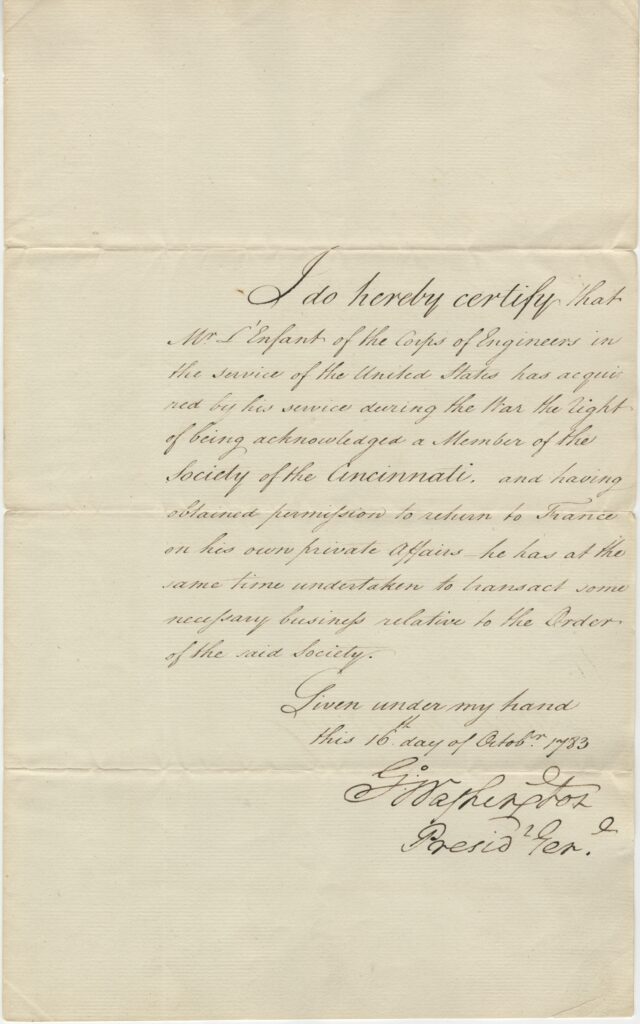 I do hereby certify that
Mr L'Enfant of the Corps of Engineers in
the service of the United States has acqui
red by his service during the War the Right
of being acknowledged a Member of the
Society of the Cincinnati. and having
obtained permission to return to France
on his own private Affairs – he has at the
same time undertaken to transact some
necessary business relative to the Order
of the said Society.
Given under my hand
this 16th day of Octobr 1783
Go Washington
Presidt Genl